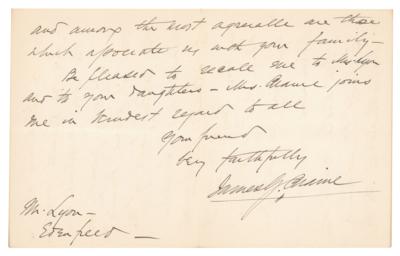 and among the most agreeable are those
which associate us with your family –
Be pleased to recall me to Mrs. Lyon
and to your daughters – Mrs. Blaine joins
me in kindest regard to all
Your friend
very faithfully
James G. Blaine
Mr. Lyon –